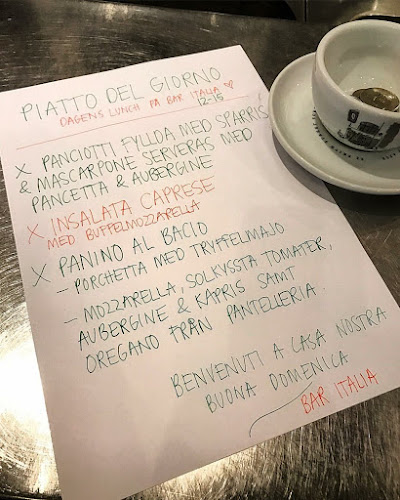 PIATTO DEL GIORNO
DAGENS LUNCH PÅ BAR ITALIA ♡
12-15
X PANCIOTTI FYLLDA MED SPARRIS
& MASCARPONE SERVERAS MED
PANCETTA & AUBERGINE
X INSALATA CAPRESE
MED BUFFELMOZZARELLA
X PANINO AL BACIO
- PORCHETTA MED TRYFFELMAJO
- MOZZARELLA, SOLKYSSTA TOMATER,
AUBERGINE & KAPRIS SAMT
OREGANO FRÅN PANTELLERIA.
BENVENUTI A CASA NOSTRA
BUONA DOMENICA
BAR ITALIA